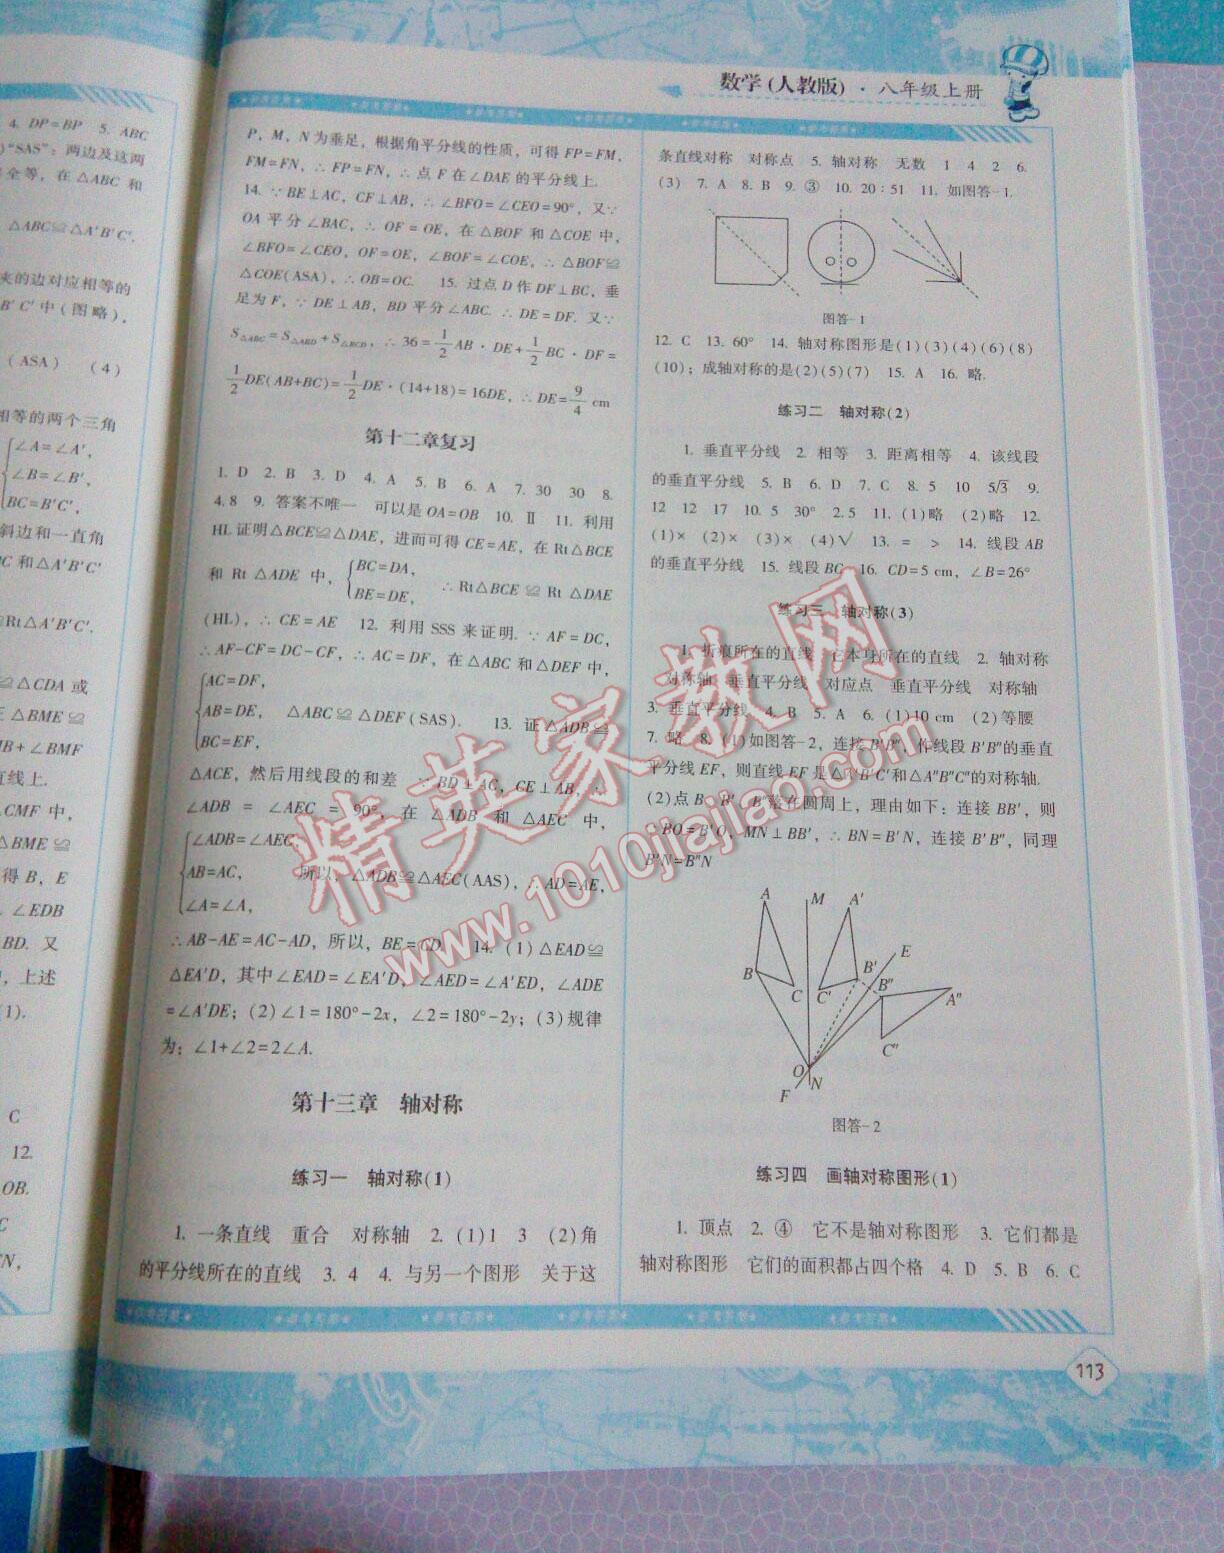 数学(人教版)·八年级上册
4. DP=BP 5. ABC
"SAS"; 两边及这两
全等, 在△ABC 和
△ABC≌△A'B'C'.
夹的边对应相等的
B'C'中(图略),
(ASA) (4)
相等的两个三角
∠A=∠A',
∠B=∠B',
BC=B'C',
斜边和一直角
C 和△A'B'C'
≌Rt△A'B'C'.
≌△CDA 或
△BME≌
MB+∠BMF
直线上.
△CMF 中,
△BME≌
得 B, E
∠EDB
BD. 又
, 上述
(1).
C
12.
OB.
P, M, N为垂足, 根据角平分线的性质, 可得 FP=FM,
FM=FN, ∴ FP=FN, ∴ 点 F 在∠DAE 的平分线上.
14. ∵ BE⊥AC, CF⊥AB, ∴ ∠BFO=∠CEO=90°, 又∵
OA 平分∠BAC, ∴ OF=OE, 在△BOF 和△COE 中,
∠BFO=∠CEO, OF=OE, ∠BOF=∠COE, ∴ △BOF≌
△COE(ASA), ∴ OB=OC. 15. 过点 D 作 DF⊥BC, 垂
足为 F, ∵ DE⊥AB, BD 平分∠ABC. ∴ DE=DF. 又∵
S△ABC=S△ABD+S△BCD, ∴ 36=1/2 AB·DE+1/2 BC·DF=
1/2 DE(AB+BC)=1/2 DE·(14+18)=16DE, ∴ DE=9/4 cm
第十二章复习
1. D 2. B 3. D 4. A 5. B 6. A 7. 30 30 8.
4.8 9. 答案不唯一 可以是 OA=OB 10. Ⅱ 11. 利用
HL 证明△BCE≌△DAE, 进而可得 CE=AE, 在 Rt△BCE
和 Rt△ADE 中, {BC=DA, BE=DE, ∴ Rt△BCE≌Rt△DAE
(HL), ∴ CE=AE 12. 利用 SSS 来证明. ∵ AF=DC,
∴ AF-CF=DC-CF, ∴ AC=DF, 在△ABC 和△DEF 中,
AC=DF,
AB=DE, △ABC≌△DEF(SAS). 13. 证△ADB≌
BC=EF,
△ACE, 然后用线段的和差 ∵ BD⊥AC, CE⊥AB, ∴
∠ADB = ∠AEC = 90°, 在 △ADB 和 △AEC 中,
∠ADB=∠AEC,
AB=AC, 所以, △ADB≌△AEC(AAS), ∴ AD=AE,
∠A=∠A,
∴ AB-AE=AC-AD, 所以, BE=CD 14. (1)△EAD≌
△EA'D, 其中∠EAD=∠EA'D, ∠AED=∠A'ED, ∠ADE
=∠A'DE; (2)∠1=180°-2x, ∠2=180°-2y; (3)规律
为: ∠1+∠2=2∠A.
第十三章 轴对称
练习一 轴对称(1)
1. 一条直线 重合 对称轴 2. (1)1 3 (2)角
的平分线所在的直线 3. 4 4. 与另一个图形 关于这
条直线对称 对称点 5. 轴对称 无数 1 4 2 6.
(3) 7. A 8. B 9. ③ 10. 20:51 11. 如图答-1.
图答-1
12. C 13. 60° 14. 轴对称图形是(1)(3)(4)(6)(8)
(10); 成轴对称的是(2)(5)(7) 15. A 16. 略.
练习二 轴对称(2)
1. 垂直平分线 2. 相等 3. 距离相等 4. 该线段
的垂直平分线 5. B 6. D 7. C 8. 5 10 5√3 9.
12 12 17 10. 5 30° 2.5 11. (1)略 (2)略 12.
(1)× (2)× (3)× (4)√ 13. = > 14. 线段 AB
的垂直平分线 15. 线段 BC 16. CD=5 cm, ∠B=26°
练习三 轴对称(3)
1. 折痕所在的直线 它本身所在的直线 2. 轴对称
对称轴 垂直平分线 对应点 垂直平分线 对称轴
3. 垂直平分线 4. B 5. A 6. (1)10 cm (2)等腰
7. 略 8. (1)如图答-2, 连接 B'B", 作线段 B'B"的垂直
平分线 EF, 则直线 EF 是△A'B'C'和△A"B"C"的对称轴.
(2)点 B、B'、B"落在圆周上, 理由如下: 连接 BB', 则
BO=B'O, MN⊥BB', ∴ BN=B'N, 连接 B'B", 同理
B'N=B"N
A M A' E
B B' B" A"
C C' C"
O N F
图答-2
练习四 画轴对称图形(1)
1. 顶点 2. ④ 它不是轴对称图形 3. 它们都是
轴对称图形 它们的面积都占四个格 4. D 5. B 6. C
113
精英家教网
www.1010jiajiao.com